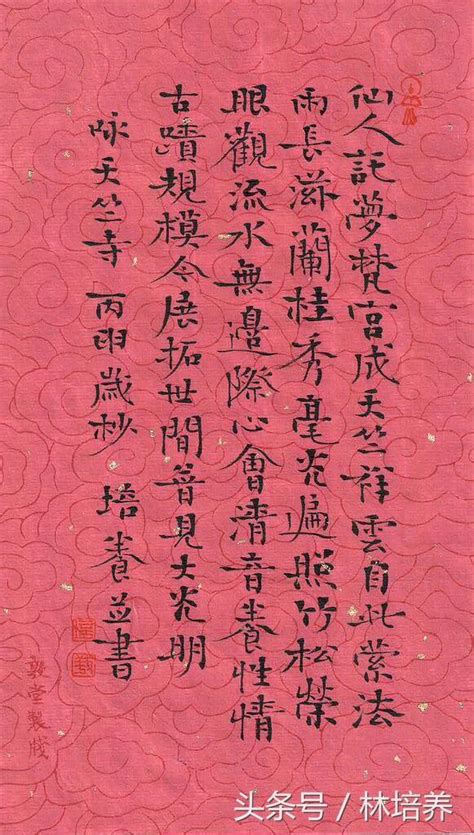 仙人託夢梵宮成天竺祥雲自此縈法
雨長滋蘭桂秀毫光遍照竹松榮
眼觀流水無邊際心會清音養性情
古蹟規模今展拓世間普見大光明
咏天竺寺 丙申歲杪 培養並書
堂製牋
头条号 / 林培养